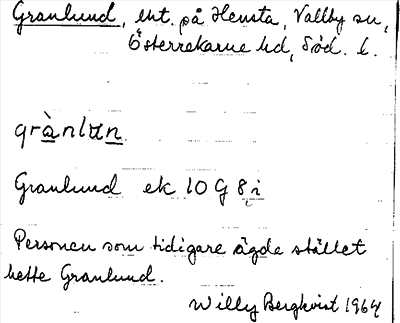 Granlund, ent. på Hensta, Vallby sn,
Österrekarne hd, Söd. l.
grànlun
Granlund ek 10 G 8 i
Personen som tidigare ägde stället
hette Granlund.
Willy Bergkvist 1964